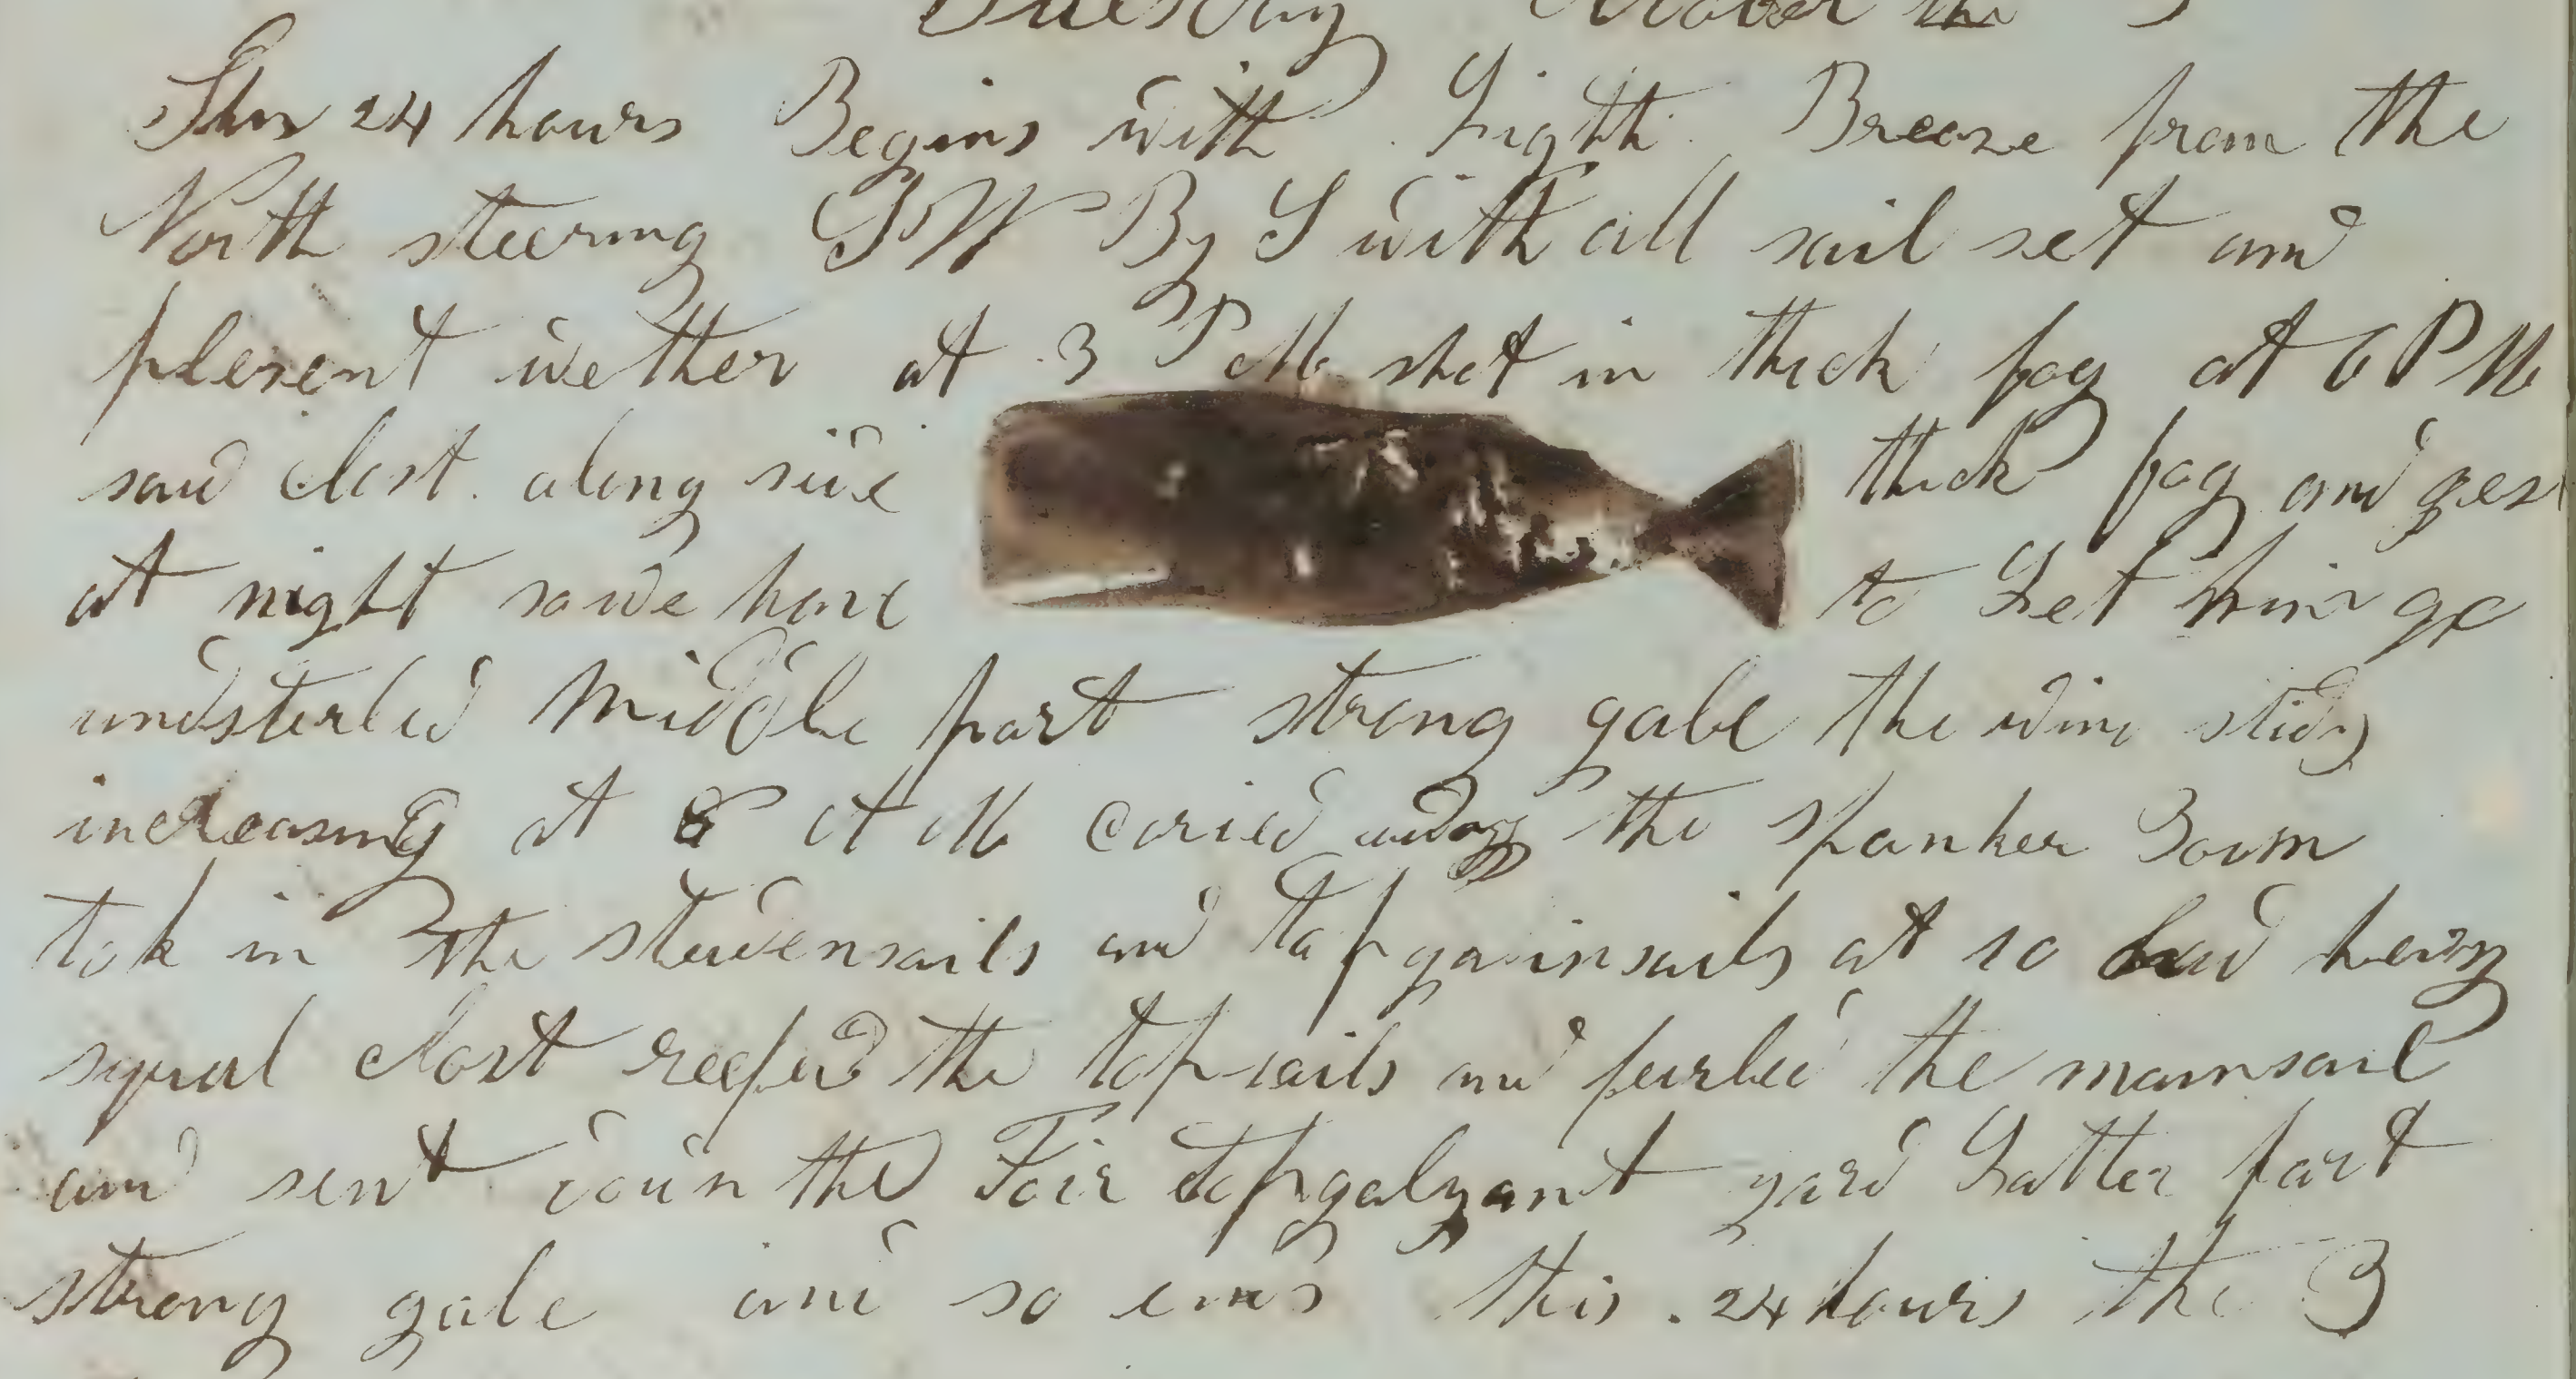 Tuesday October the 3
This 24 hours Begins with Light Breaze from the
North steering SW By S with all sail set and
plesent wether at 3 PM shot in thick fog at 6 PM
saw clost along side thick fog and
at night so we have to Let him go
undsterbed Middle part strong gale the wind stidy
increasing at 8 AM caried away the spanker Boom
tok in the studensails and topgainsails at 10 had hevy
squal clost reefed the topsails and feurled the mainsail
and sent down the Foir topgalgant yard Latter part
strong gale and so ends this 24 hours the 3